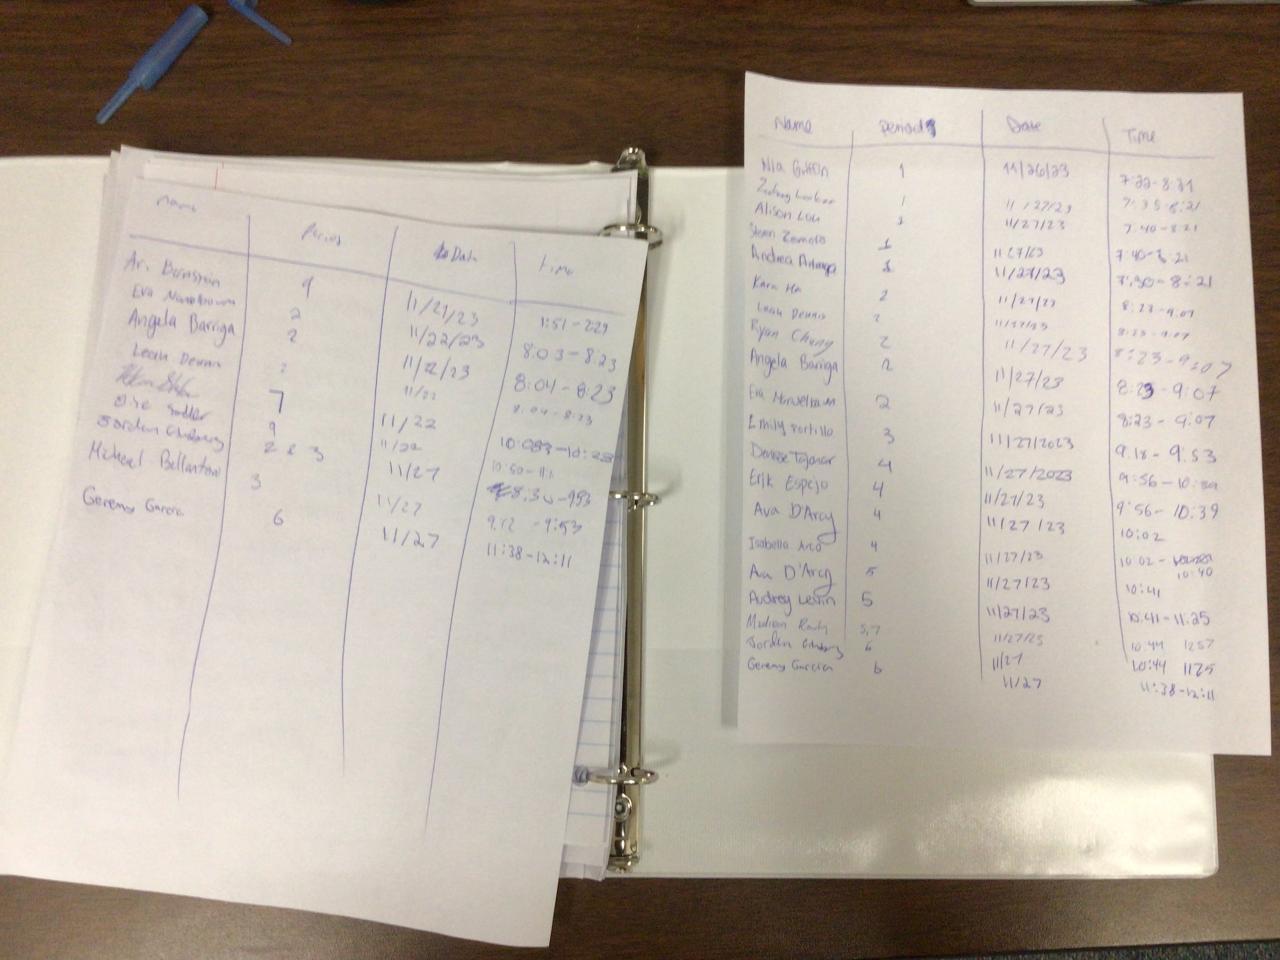 Name Period Date Time
Ari Bernstein 9 11/21/23 1:51-2:29
Eva 2 11/22/23 8:03-8:23
Angela Barriga 2 11/22/23 8:04-8:23
Leah Dennis 2 11/22 8:04-8:23
7 11/22
Sadler 9 11/22 10:50-11:
Jordan Ginsburg 2 & 3 11/27 8:30-953
Michael Bellantoni 3 11/27 9:12-9:53
Geremy Garcia 6 11/27 11:38-12:11
Name Period Date Time
Nia 1 11/26/23 7:22-8:21
1 11/27/23 7:35-8:21
Alison Lou 1 11/27/23 7:40-8:21
1 11/27/23 7:40-8:21
Andrea 1 11/27/23 7:30-8:21
Kara Ha 2 11/27/23 8:23-9:07
Leah Dennis 2 11/27/23 8:23-9:07
Ryan Chung 2 11/27/23 8:23-9:07
Angela Barriga 2 11/27/23 8:23-9:07
Eva 2 11/27/23 8:23-9:07
Emily Portillo 3 11/27/2023 9:18-9:53
Denisse 4 11/27/2023 9:56-10:39
Erik Espejo 4 11/27/23 9:56-10:39
Ava D'Arcy 4 11/27/23 10:02
Isabella Arco 4 11/27/23 10:02-10:40
Ava D'Arcy 5 11/27/23 10:41
Audrey Levin 5 11/27/23 10:41-11:25
5,7 11/27/23 10:44 1257
Jordan Ginsburg 6 11/27 10:44 1125
Geremy Garcia 6 11/27 11:38-12:11